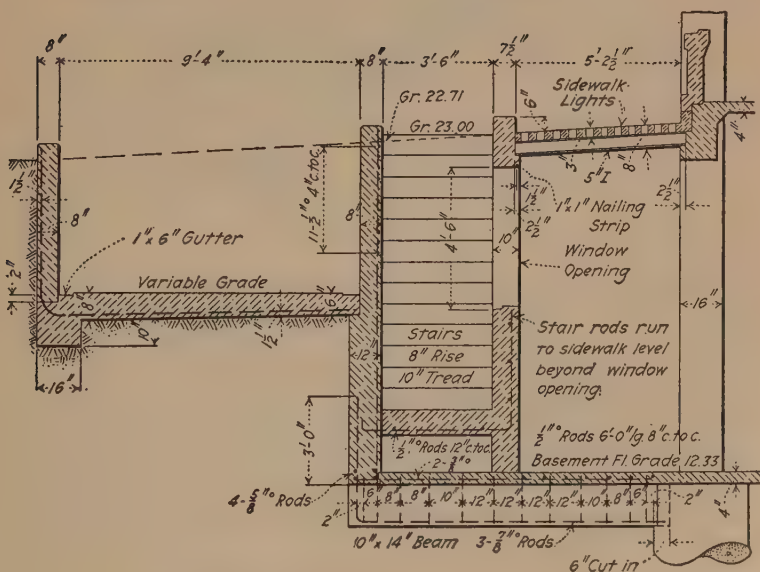 8" 9'-4" 8" 3'-6" 7½" 5'-2½"
Sidewalk
Lights
Gr. 22.71
6"
Gr. 23.00
4"
3"
5" I
8"
1½"
8"
11-½"° 4" c. to c.
8"
4'-6"
1½"
2½"
1" x 1" Nailing
Strip
2½"
10"
Window
Opening
1" x 6" Gutter
2"
Variable Grade
8"
6"
10"
1½"
16"
12"
16"
Stairs
8" Rise
10" Tread
Stair rods run
to sidewalk level
beyond window
opening.
3'-0"
½"° Rods 12" c. to c.
½"° Rods 6'-0" lg. 8" c. to c.
Basement Fl. Grade 12.33
4-⅝"° Rods
6" 8" 8" 10" 12" 12" 12" 12" 10 8" 6" 2"
2"
4"
10" x 14" Beam 3-⅞"° Rods
6" Cut in